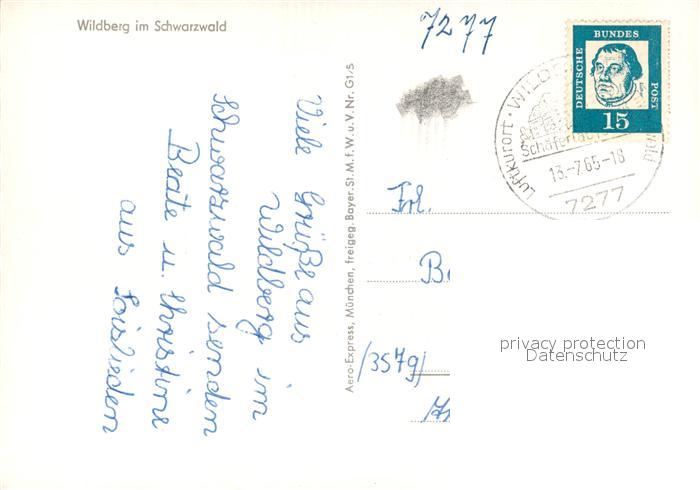 Wildberg im Schwarzwald
7277
DEUTSCHE
BUNDES
POST
15
Luftkurort · WILDB
Schäferlauf
13.-7.65-18
7277
Viele Grüße aus
Wildberg im
Schwarzwald senden
Beate u. Christine
aus
Aero-Express, München, freigeg. Bayer. St. M. f. W. u. V. Nr. G1/5
Frl.
B.
/3579/
privacy protection
Datenschutz